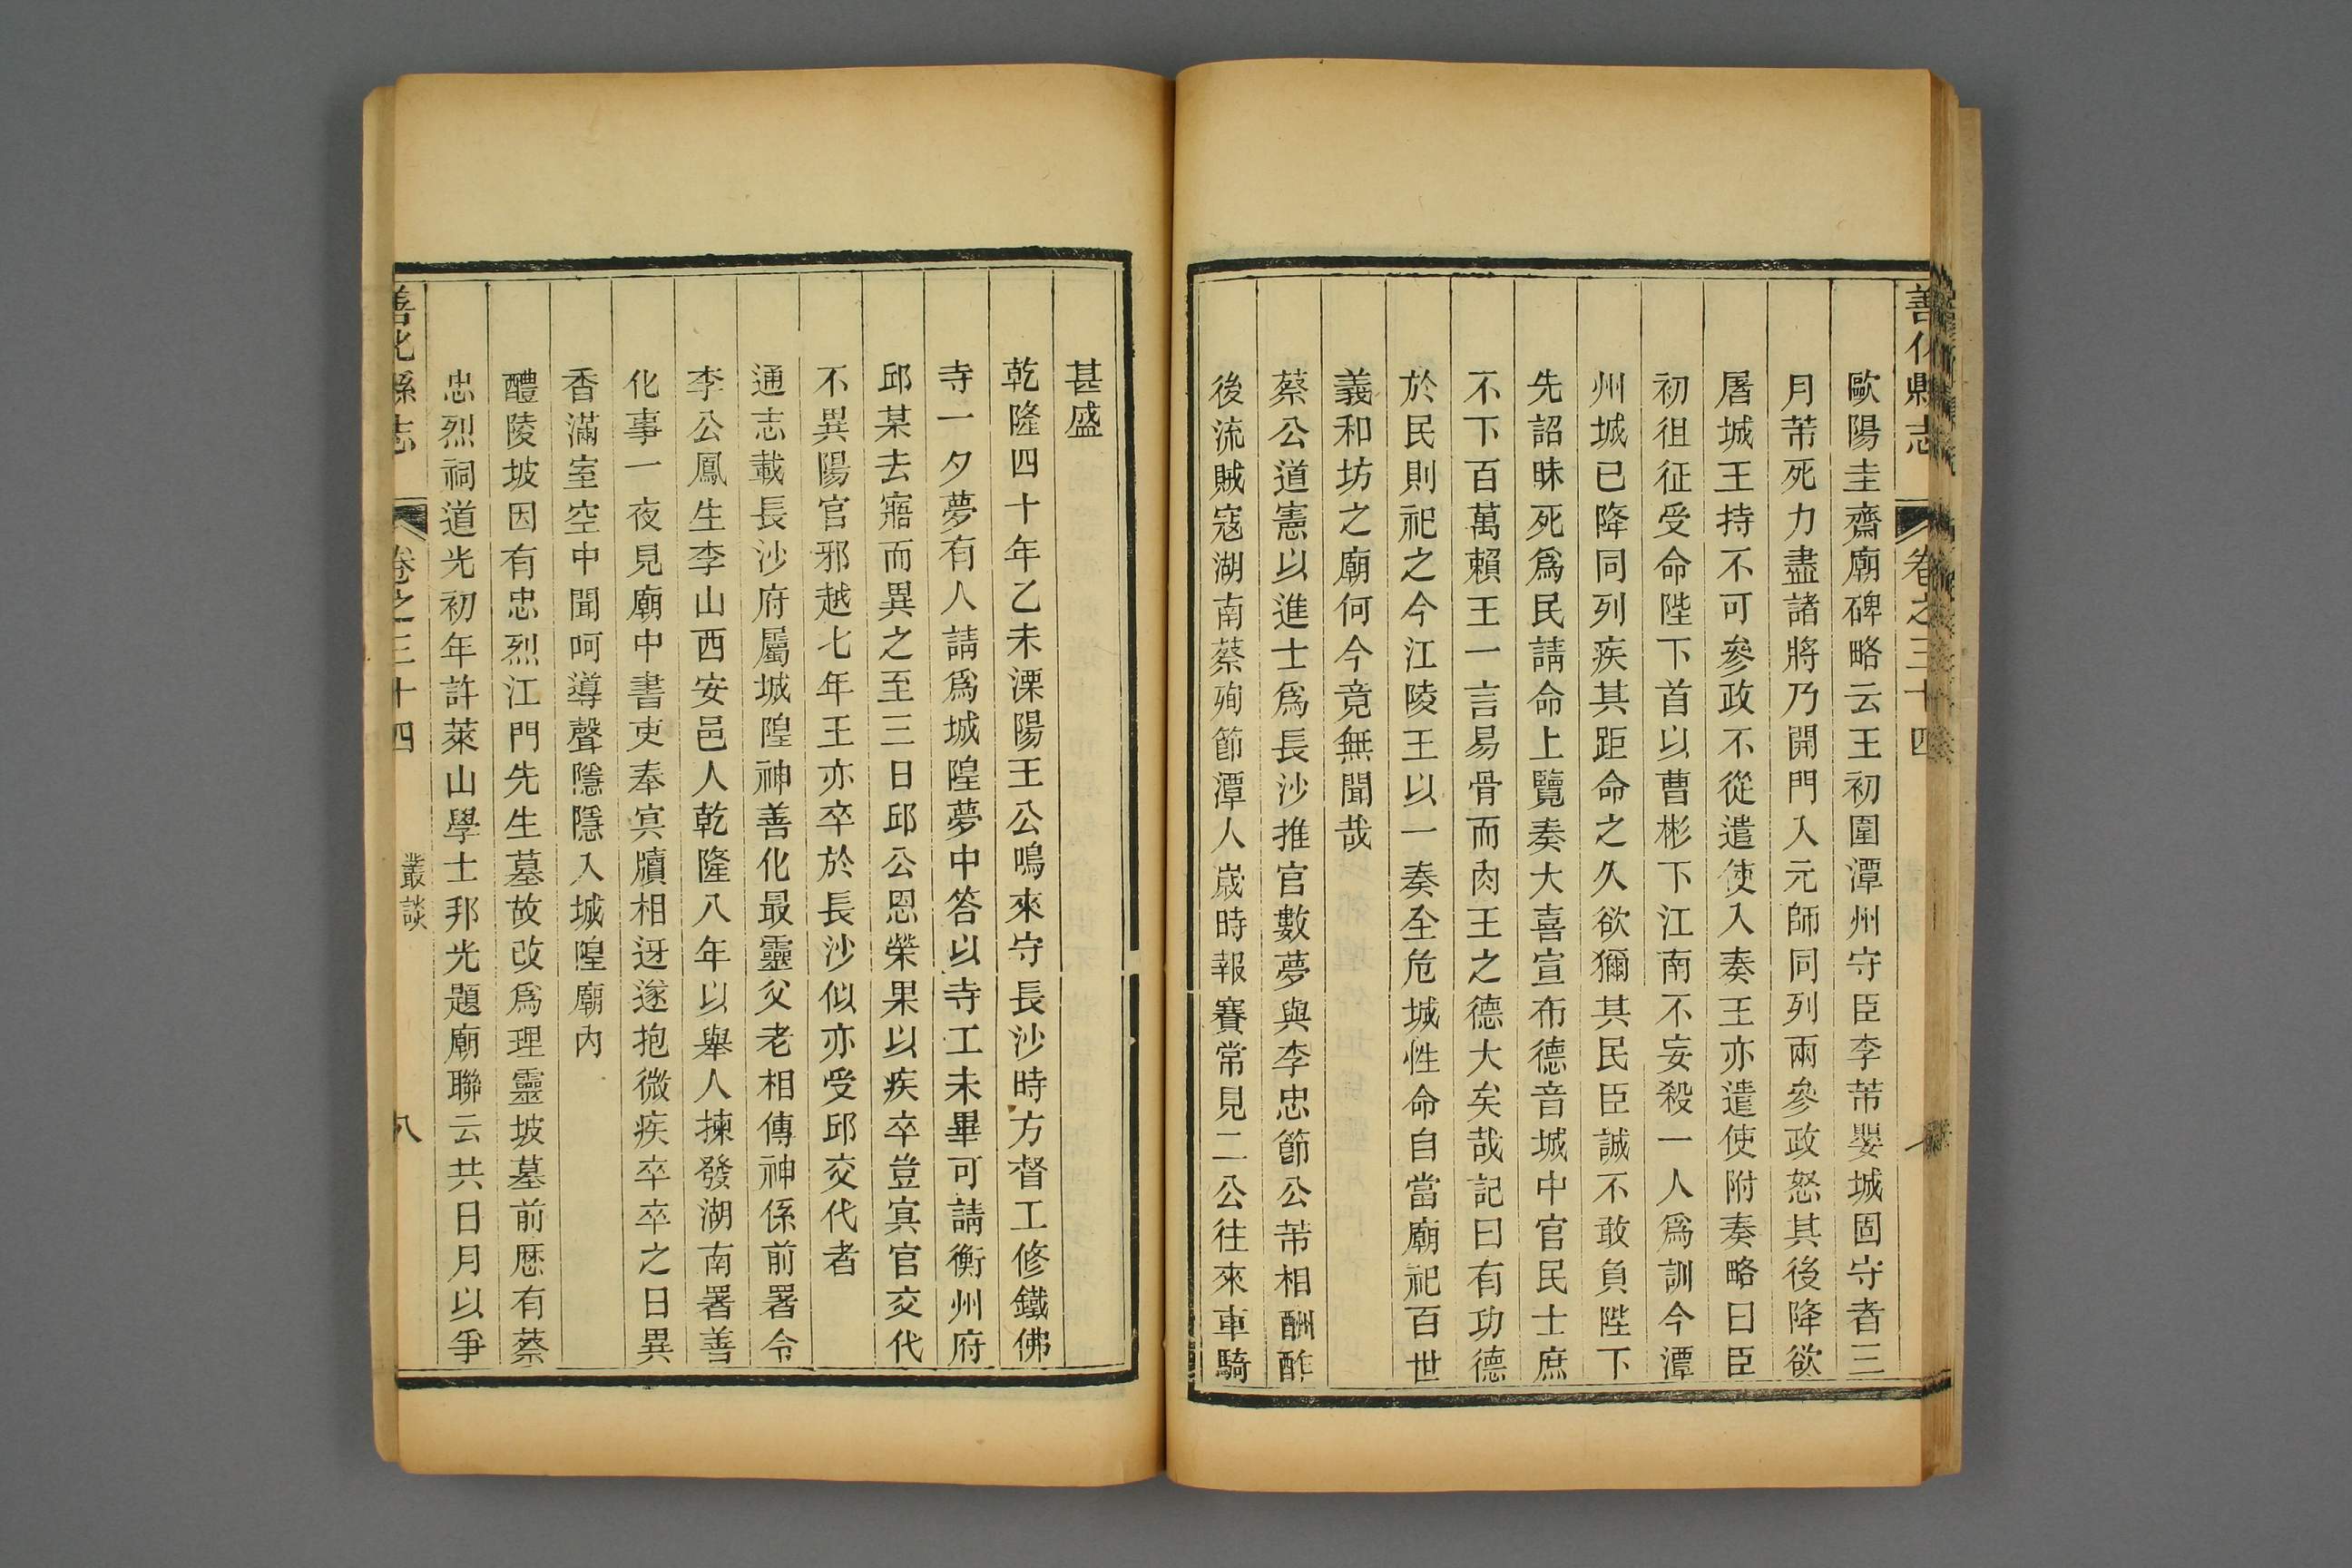 善化縣志
卷之三十四
歐陽圭齋廟碑略云王初圍潭州守臣李芾嬰城固守者三
月芾死力盡諸將乃開門入元師同列兩參政怒其後降欲
屠城王持不可參政不從遣使入奏王亦遣使附奏略曰臣
初徂征受命陛下首以曹彬下江南不妄殺一人爲訓今潭
州城已降同列疾其距命之久欲獮其民臣誠不敢負陛下
先詔昧死爲民請命上覽奏大喜宣布德音城中官民士庶
不下百萬賴王一言易骨而肉王之德大矣哉記曰有功德
於民則祀之今江陵王以一奏全危城性命自當廟祀百世
義和坊之廟何今竟無聞哉
蔡公道憲以進士爲長沙推官數夢與李忠節公芾相酬酢
後流賊寇湖南蔡殉節潭人歲時報賽常見二公往來車騎
甚盛
乾隆四十年乙未溧陽王公鳴來守長沙時方督工修鐵佛
寺一夕夢有人請爲城隍夢中答以寺工未畢可請衡州府
邱某去寤而異之至三日邱公恩榮果以疾卒豈冥官交代
不異陽官邪越七年王亦卒於長沙似亦受邱交代者
通志載長沙府屬城隍神善化最靈父老相傳神係前署令
李公鳳生李山西安邑人乾隆八年以舉人揀發湖南署善
化事一夜見廟中書吏奉冥牘相迓遂抱微疾卒卒之日異
香滿室空中聞呵導聲隱隱入城隍廟內
醴陵坡因有忠烈江門先生墓故改爲理靈坡墓前歷有蔡
忠烈祠道光初年許萊山學士邦光題廟聯云共日月以爭
善化縣志
卷之三十四
叢談
八